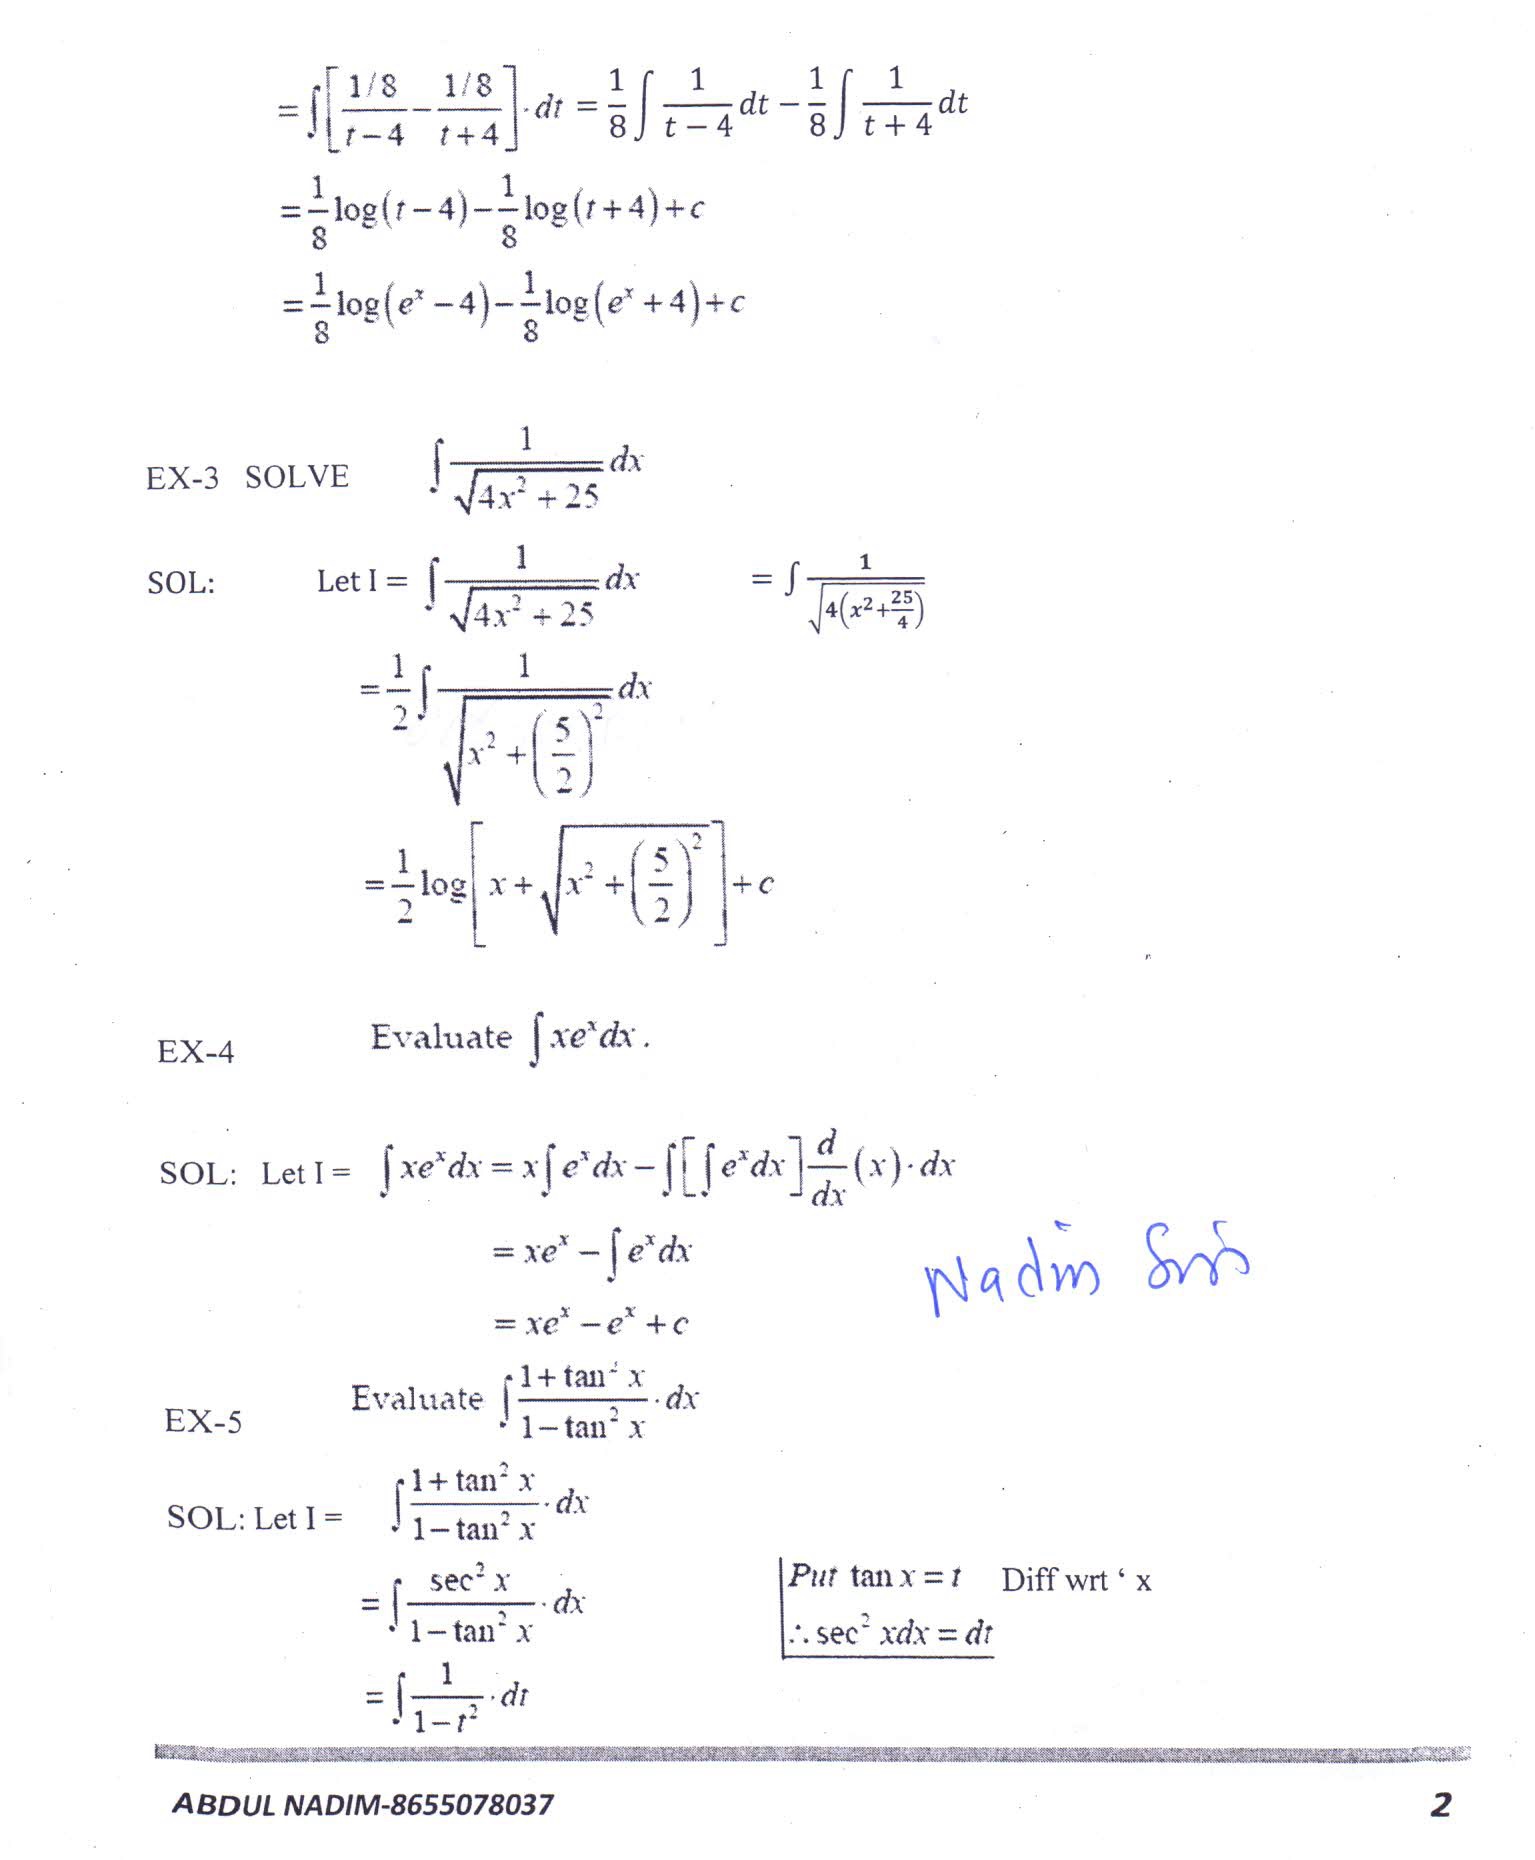 = ∫ [ (1/8)/(t−4) − (1/8)/(t+4) ] · dt = 1/8 ∫ 1/(t − 4) dt − 1/8 ∫ 1/(t + 4) dt
= 1/8 log(t−4) − 1/8 log(t+4) + c
= 1/8 log(eˣ −4) − 1/8 log(eˣ +4) + c
EX-3 SOLVE ∫ 1/√(4x² + 25) dx
SOL: Let I = ∫ 1/√(4x² + 25) dx = ∫ 1/√(4(x²+25/4))
= 1/2 ∫ 1/√(x² + (5/2)²) dx
= 1/2 log[ x + √(x² + (5/2)²) ] + c
EX-4 Evaluate ∫ xeˣdx .
SOL: Let I = ∫ xeˣdx = x∫ eˣdx − ∫[∫eˣdx] d/dx (x) · dx
= xeˣ − ∫ eˣdx
= xeˣ − eˣ + c
EX-5 Evaluate ∫ (1+ tan² x)/(1− tan² x) · dx
SOL: Let I = ∫ (1+ tan² x)/(1− tan² x) · dx
= ∫ sec² x/(1− tan² x) · dx Put tan x = t Diff wrt ‘ x
∴ sec² xdx = dt
= ∫ 1/(1− t²) · dt
Nadim
ABDUL NADIM-8655078037 2